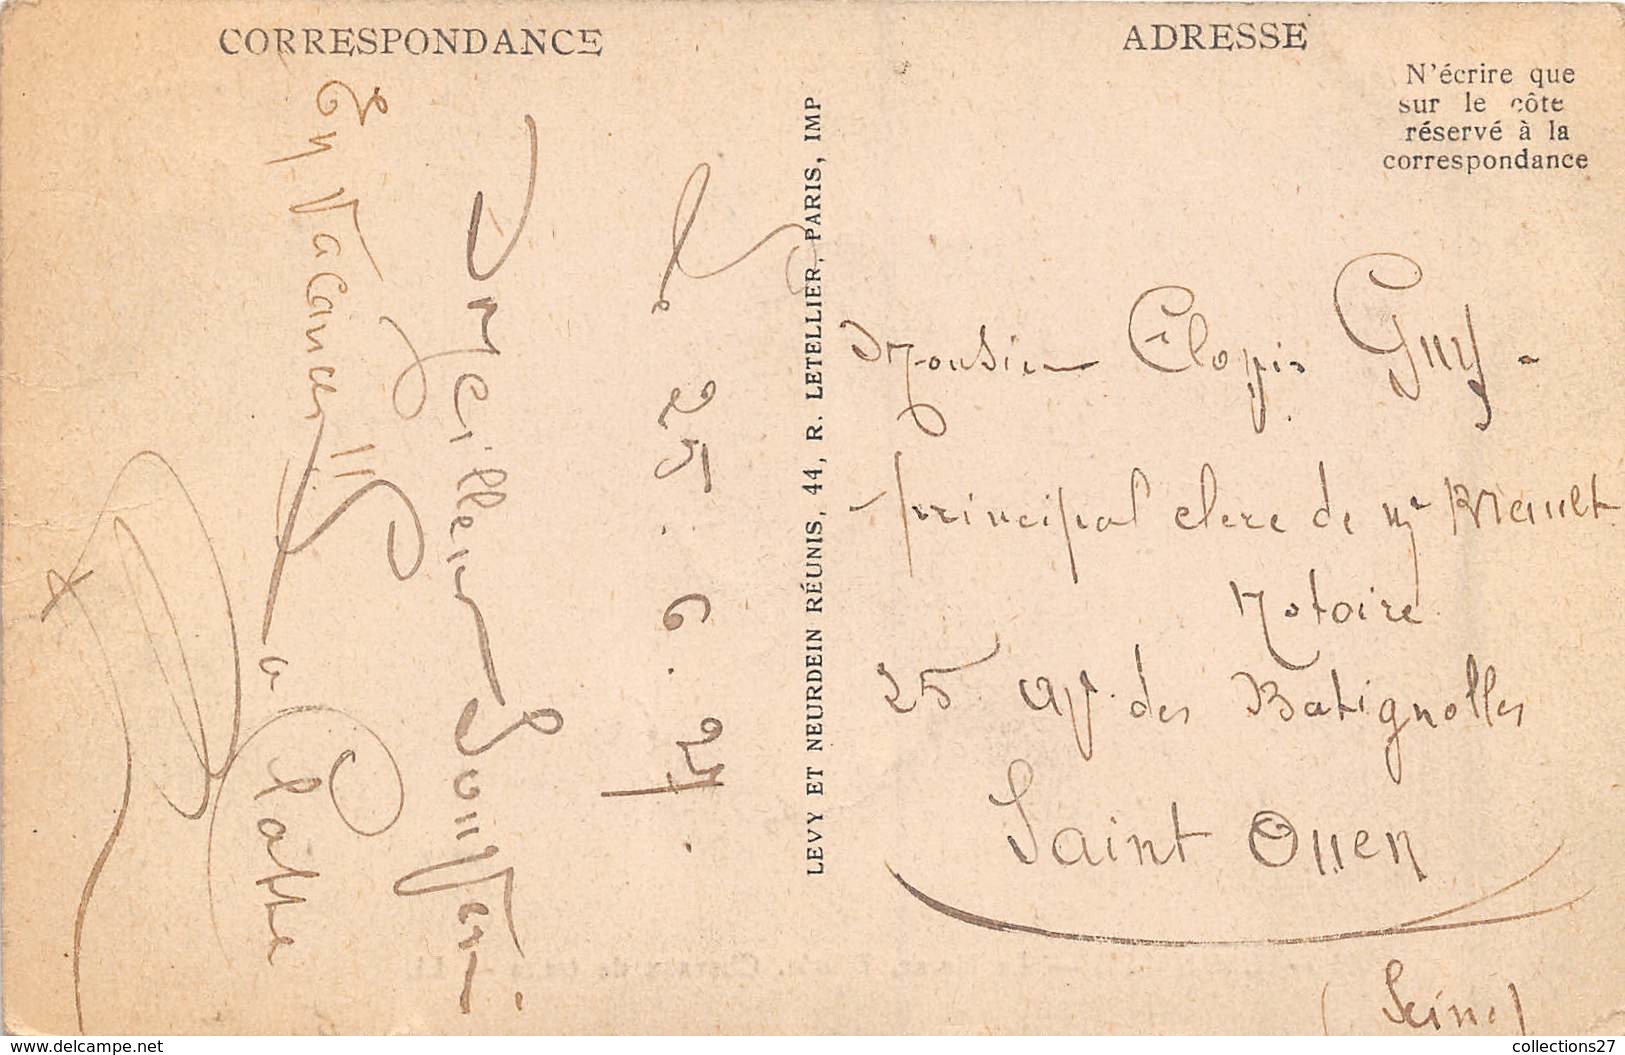 CORRESPONDANCE
Le 25.6.24.
Meilleur Souvenir
En Vacances
a la
ADRESSE
N'écrire que
sur le côte
réservé à la
correspondance
LEVY ET NEURDEIN RÉUNIS, 44, R. LETELLIER, PARIS, IMP
Monsieur Guy
principal clerc de Me
Notaire
25 des Batignolles
Saint Ouen
(Seine)
collections27
www.delcampe.net